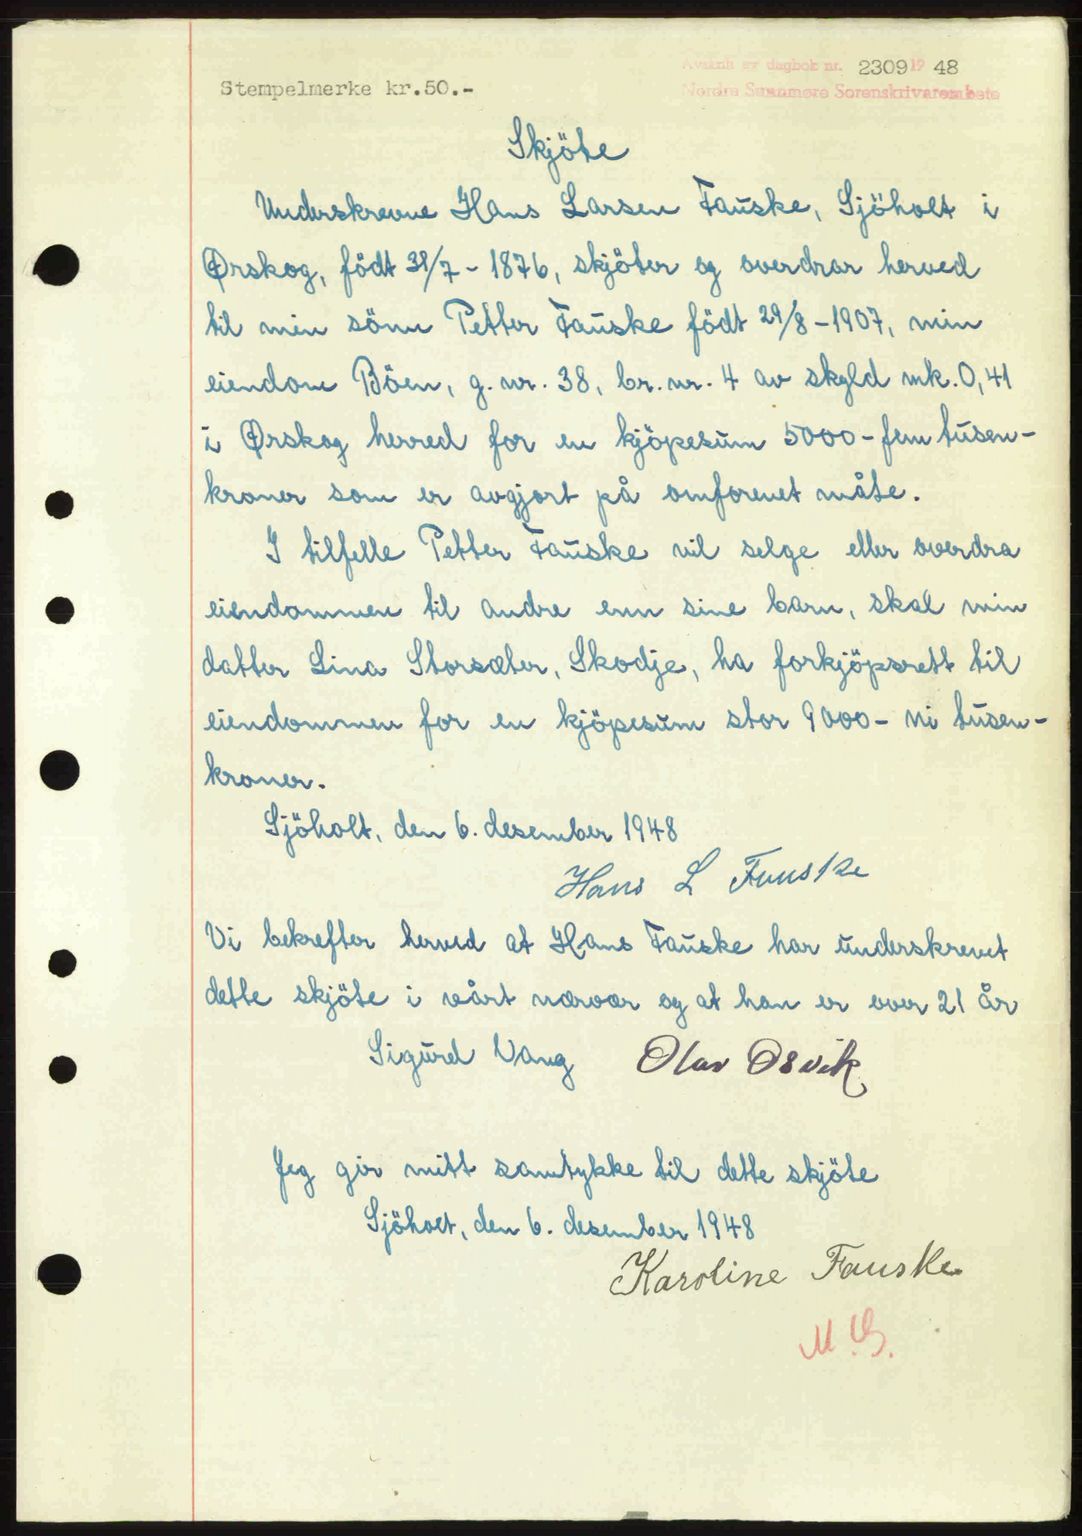 Avskrift av dagbok nr. 2309 19 48
Stempelmerke kr.50.-
Nordre Sunnmøre Sorenskriverembete
Skjöte
Underskrevne Hans Larsen Fauske, Sjöholt i
Ørskog, födt 31/7 - 1876, skjöter og overdrar herved
til min sönn Petter Fauske födt 29/8 - 1907, min
eiendom Böen, g. nr. 38, br. nr. 4 av skyld mk. 0,41
i Ørskog herred for en kjöpesum 5000 - fem tusen -
kroner som er avgjort på omforenet måte.
I tilfelle Petter Fauske vil selge eller overdra
eiendommen til andre enn sine barn, skal min
datter Lina Storsæter, Skodje, ha forkjöpsrett til
eiendommen for en kjöpesum stor 9000 - ni tusen -
kroner.
Sjöholt, den 6. desember 1948
Hans L Fauske
Vi bekrefter herved at Hans Fauske har underskrevet
dette skjöte i vårt nærvær og at han er over 21 år
Sigurd Vang Olav Osvik
Jeg gir mitt samtykke til dette skjöte
Sjöholt, den 6. desember 1948
Karoline Fauske